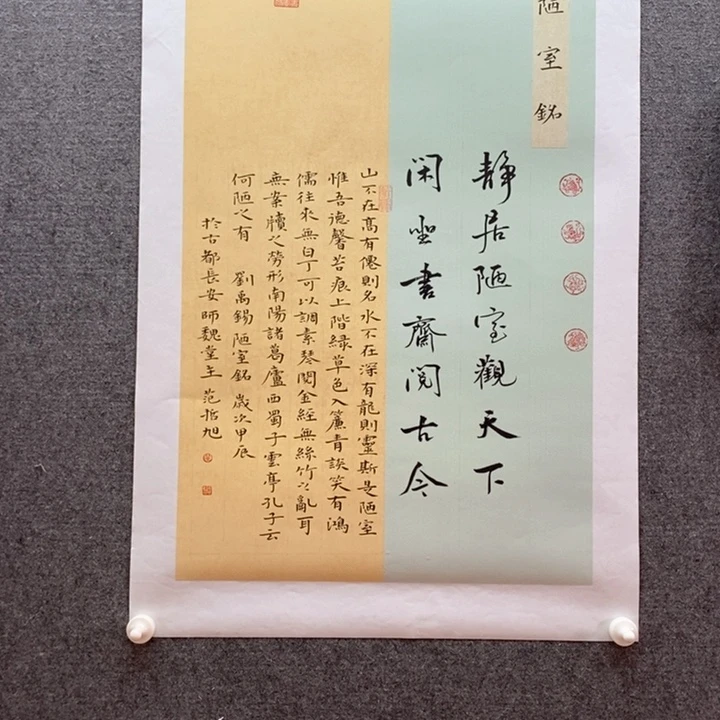 陋室銘
靜居陋室觀天下
闲坐書齋閱古今
山不在高有僊則名水不在深有龍則靈斯是陋室
惟吾德馨苔痕上階緑草色入簾青談笑有鴻
儒往來無白丁可以調素琴閱金經無絲竹之亂耳
無案牘之勞形南陽諸葛廬西蜀子雲亭孔子云
何陋之有 劉禹錫陋室銘 歲次甲辰
於古都長安師魏堂主 范哲旭